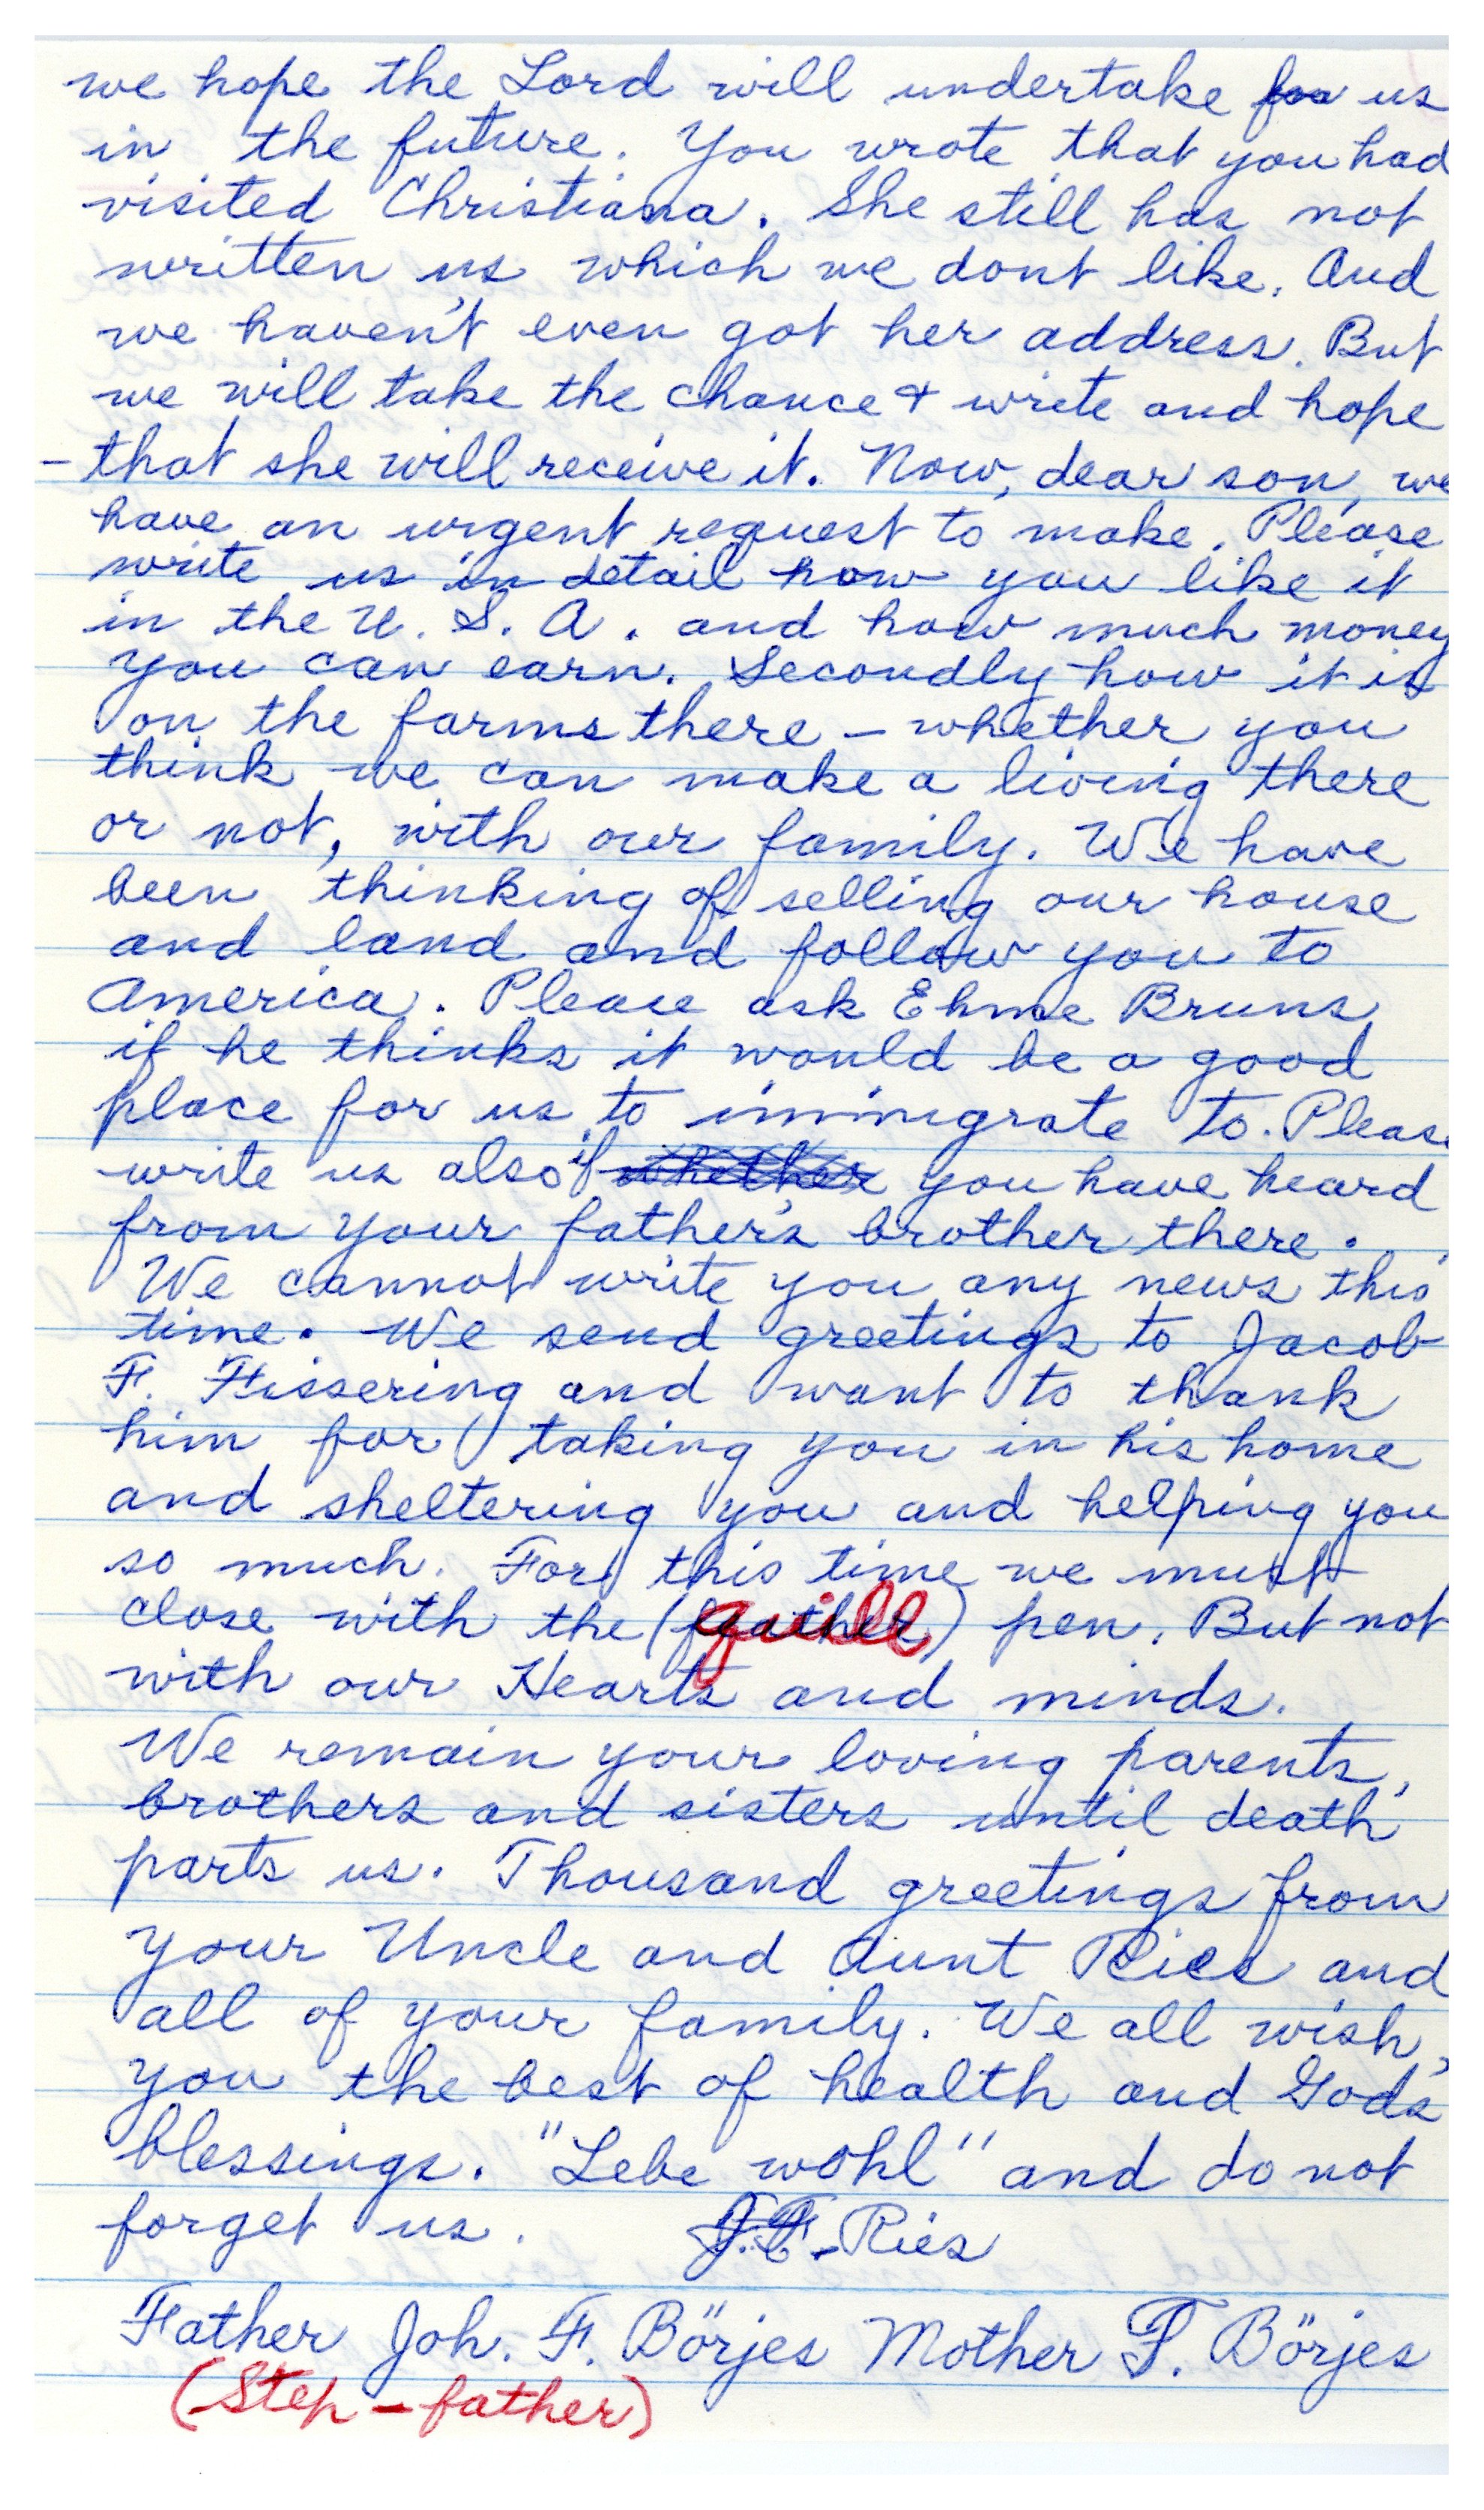 we hope the Lord will undertake for us
in the future. You wrote that you had
visited Christiana. She still has not
written us which we dont like. And
we haven't even got her address. But
we will take the chance & write and hope
- that she will receive it. Now, dear son, we
have an urgent request to make. Please
write us in detail how you like it
in the U. S. A. and how much money
you can earn. Secondly how it is
on the farms there - whether you
think we can make a living there
or not, with our family. We have
been thinking of selling our house
and land and follow you to
America. Please ask Ehme Bruns
if he thinks it would be a good
place for us to immigrate to. Please
write us also if whether you have heard
from your father's brother there.
We cannot write you any news this
time. We send greetings to Jacob
F. Fissering and want to thank
him for taking you in his home
and sheltering you and helping you
so much. For this time we must
close with the (feather) quill pen. But not
with our Hearts and minds.
We remain your loving parents,
brothers and sisters until death
parts us. Thousand greetings from
your Uncle and Aunt Ries and
all of your family. We all wish,
you the best of health and God's
blessings. "Lebe wohl" and do not
forget us. J.F. Ries
Father Joh. F. Börjes Mother F. Börjes
(Step-father)